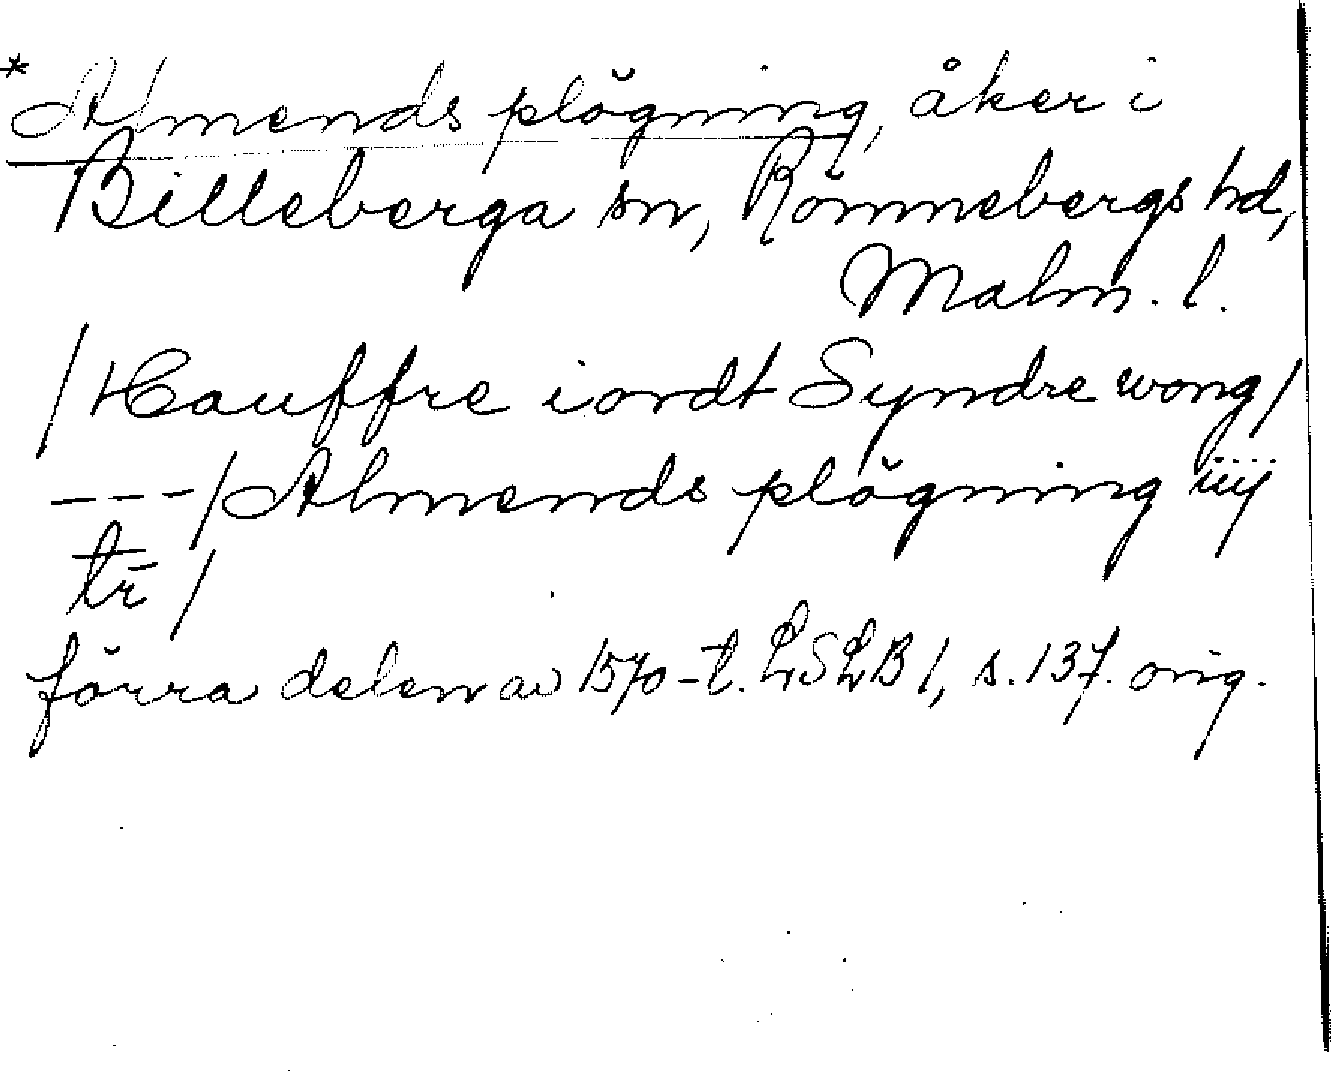 * Almends plögning, åker i
Billeberga sn, Rönnebergs hd,
Malm. l.
/ Hauffre iordt Syndre wong /
--- / Almends plögning iiij
tr̄ /
förra delen av 1570-t. LSLB 1, s. 137. orig.